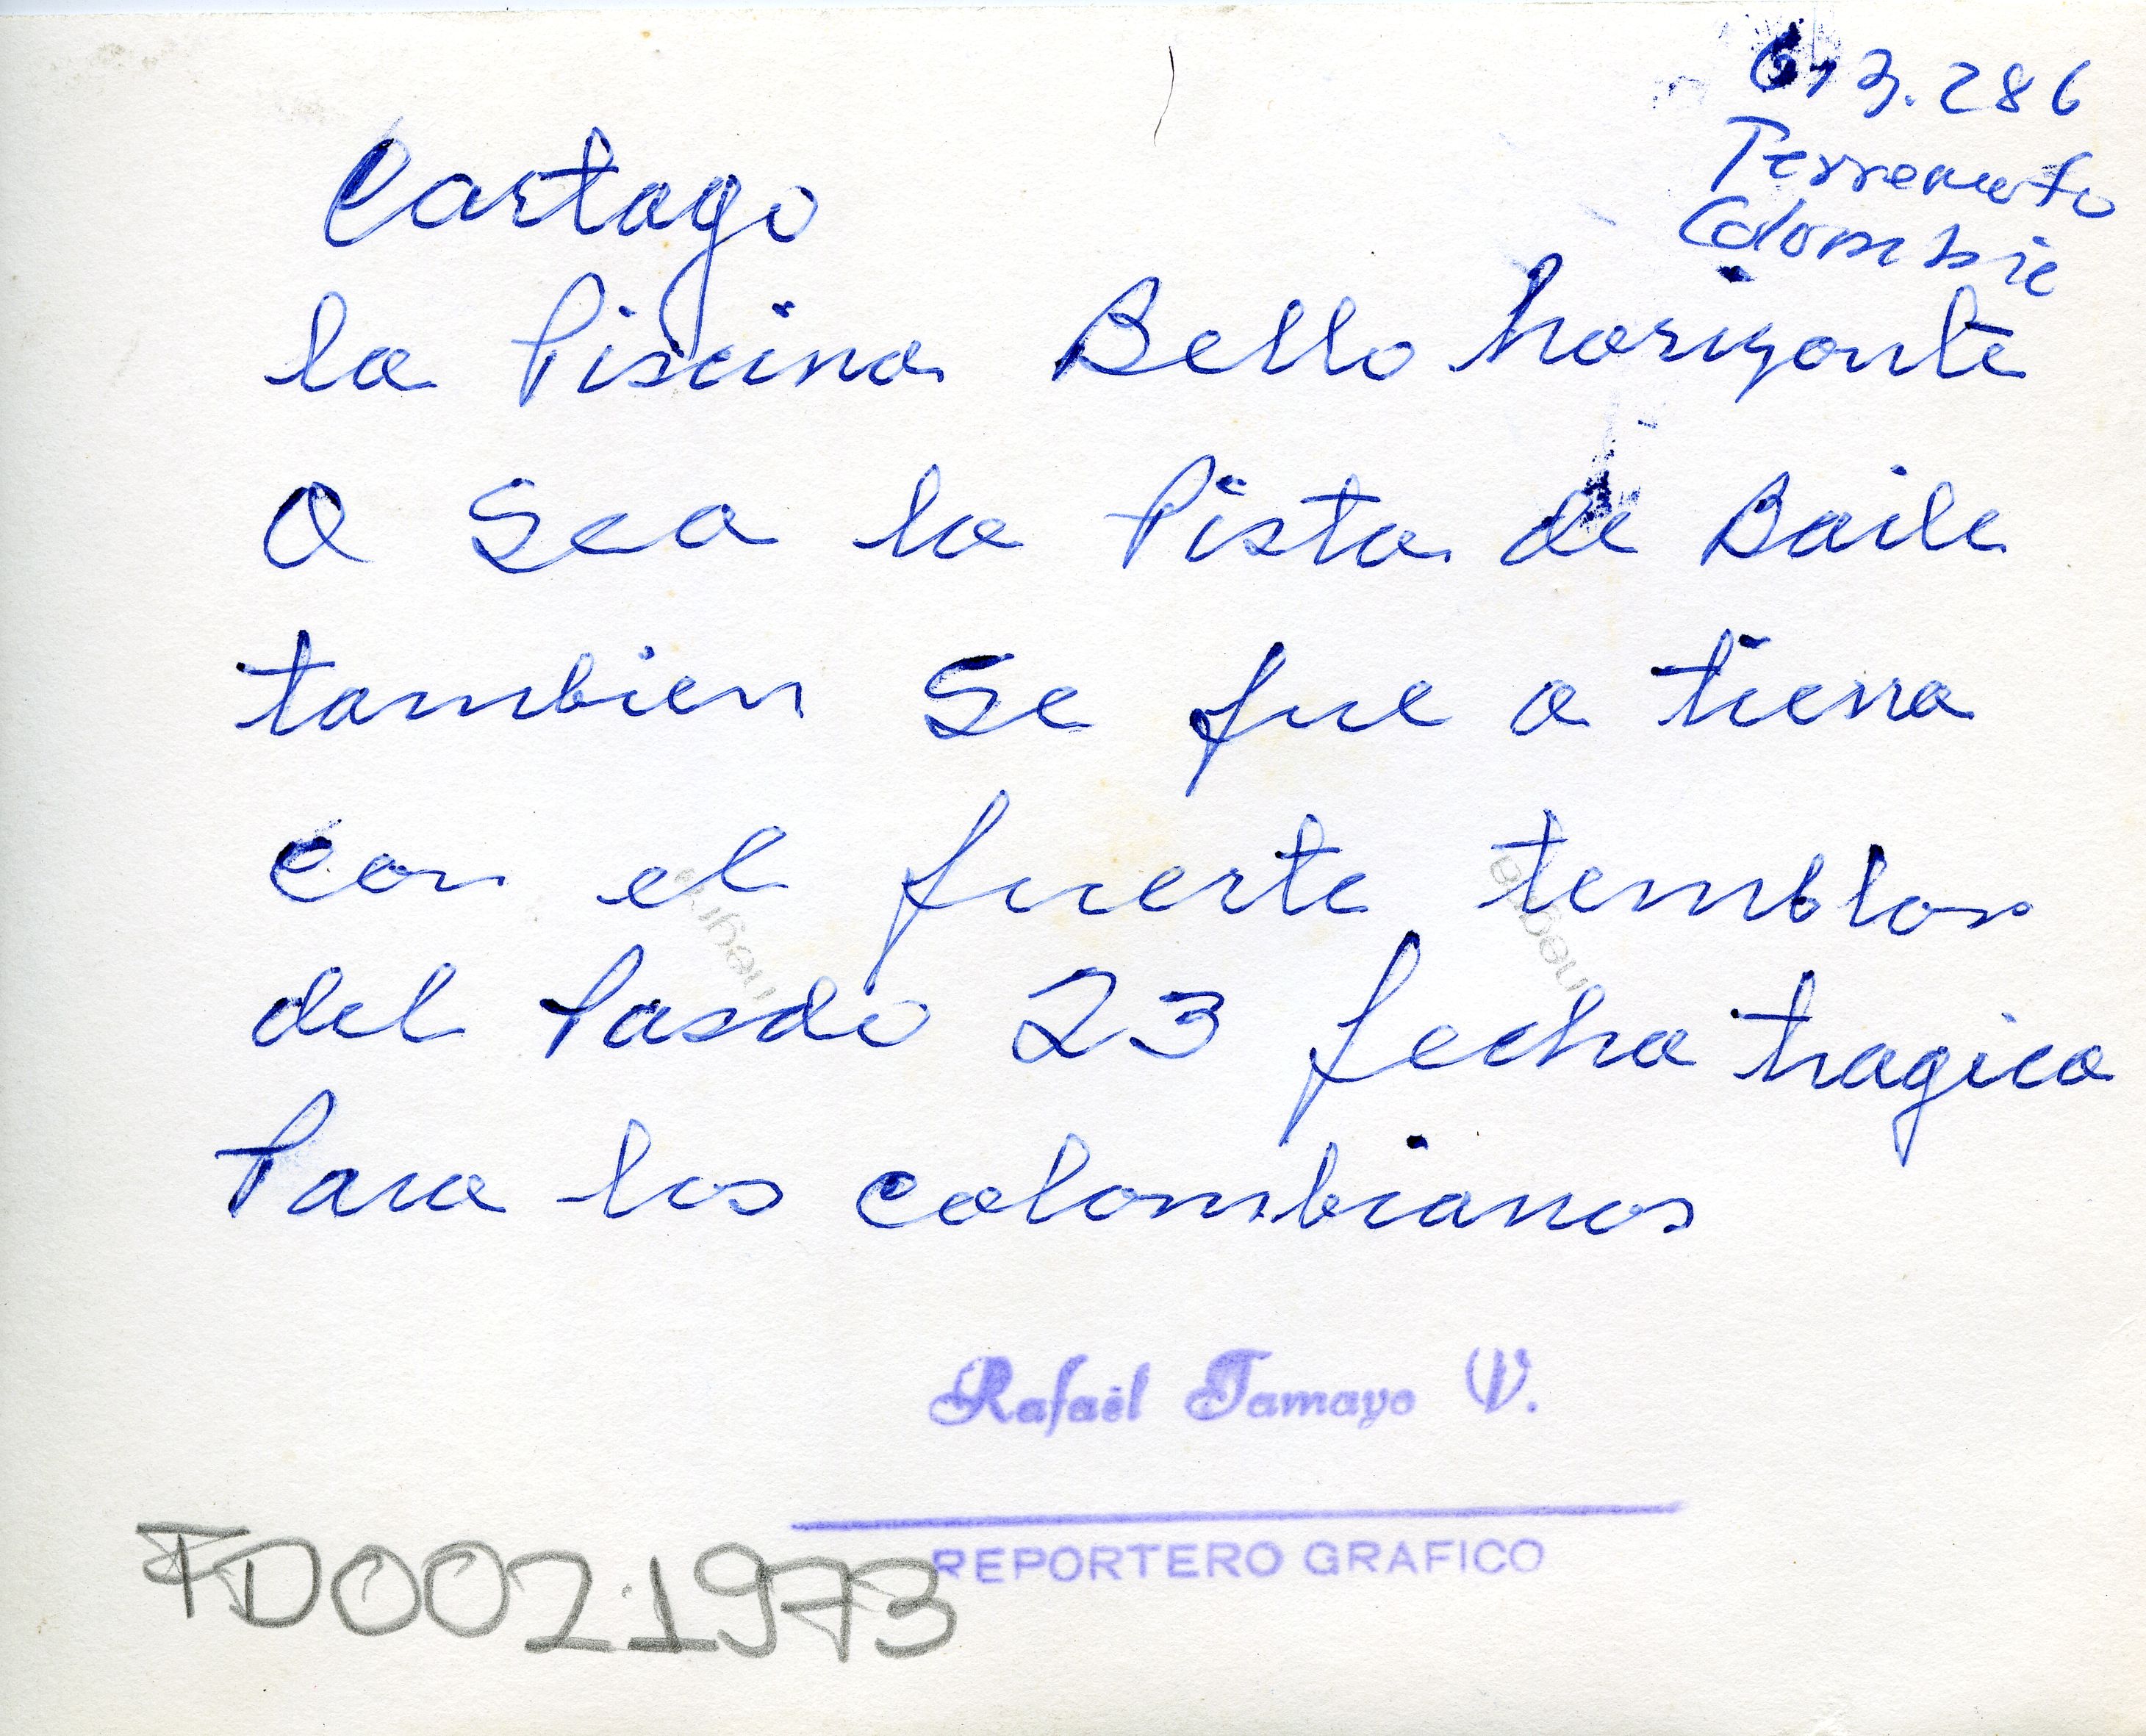 613.286
Terremoto
Colombia
Cartago
la Piscina Bello horizonte
O Sea la Pista de Baile
tambien Se fue a tierra
con el fuerte temblor
del Pasdo 23 fecha tragica
Para los colombianos
Rafael Tamayo V.
REPORTERO GRAFICO
FD0021973